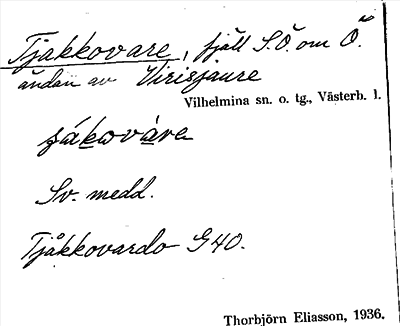 Tjakkovare, fjäll S.Ö. om Ö.
ändan av Virisjaure
Vilhelmina sn. o. tg., Västerb. l.
Sv. medd.
Tjåkkovardo G40.
Thorbjörn Eliasson, 1936.